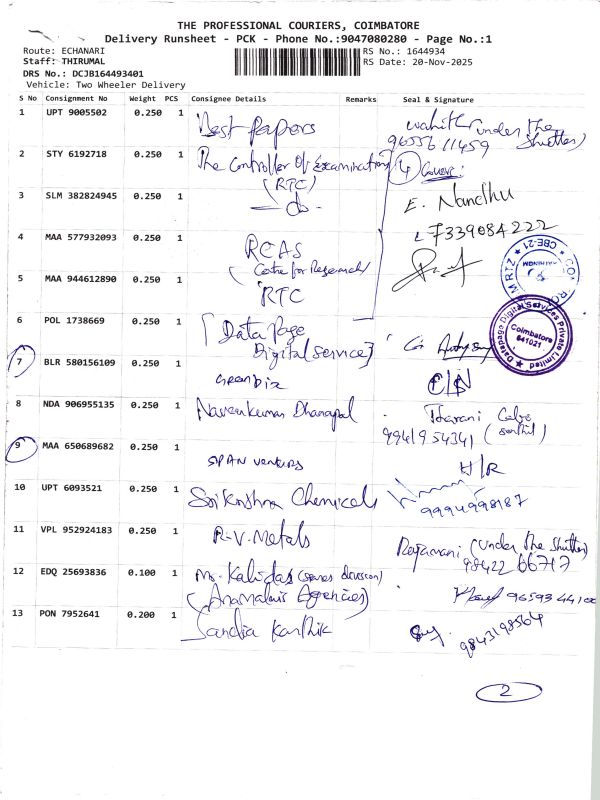 THE PROFESSIONAL COURIERS, COIMBATORE
Delivery Runsheet - PCK - Phone No.:9047080280 - Page No.:1
Route: ECHANARI
RS No.: 1644934
Staff: THIRUMAL
RS Date: 20-Nov-2025
DRS No.: DCJB164493401
Vehicle: Two Wheeler Delivery
S No Consignment No Weight PCS Consignee Details Remarks Seal & Signature
1 UPT 9005502 0.250 1 Best Papers under the shutter)
9655611459
2 STY 6192718 0.250 1 The Controller Of Examination 4
(RTC)
3 SLM 382824945 0.250 1 - do - E. Nandhu
7339084222
4 MAA 577932093 0.250 1 RCAS
(Centre for Research)
5 MAA 944612890 0.250 1 RTC
CBE-21
6 POL 1738669 0.250 1 [Data Page
Digital Service]
Datapage Digital Services Private Limited
Coimbatore
641021
7 BLR 580156109 0.250 1 Greenbiz C/N
8 NDA 906955135 0.250 1 Naveenkumar Dhanapal Tharani
9941954341 (Senthil)
9 MAA 650689682 0.250 1 SPAN venturs H/R
10 UPT 6093521 0.250 1 Srikrishna Chemicals
9994998187
11 VPL 952924183 0.250 1 R-V-Metals Rajamani (Under The Shutter)
98422 66717
12 EDQ 25693836 0.100 1 Mr. Kalidas (sales division)
(Anamalais Agencies) 96593 44100
13 PON 7952641 0.200 1 Sandia Karthik
9843198564
2